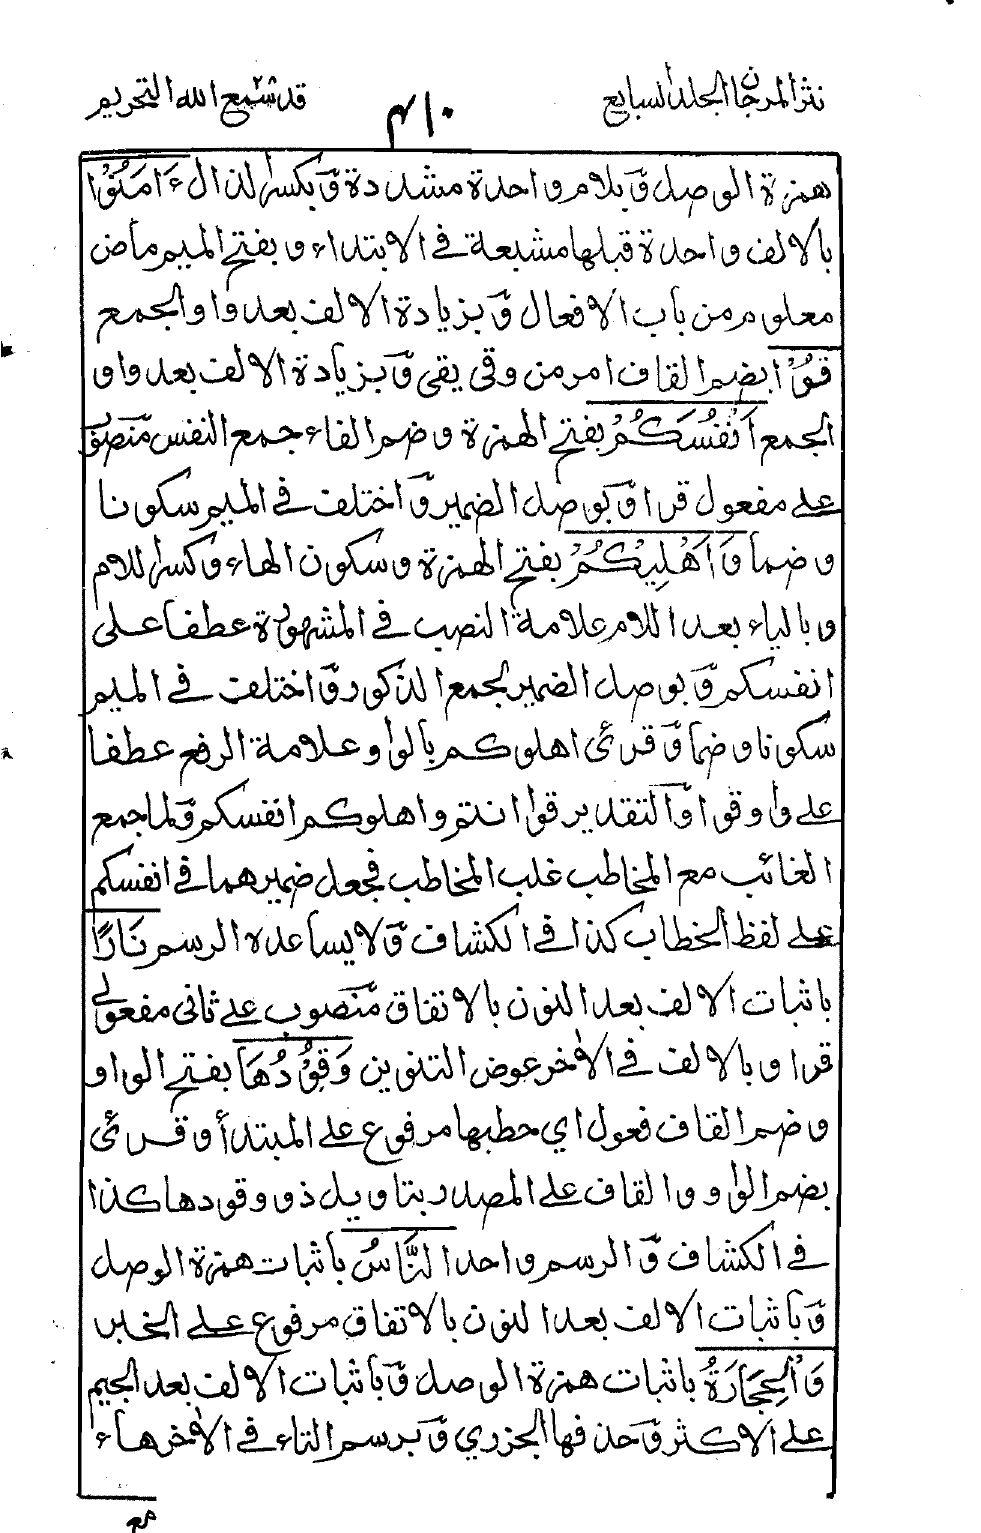 نثر المرجان الجلد السابع
٤١٠
قد سمع الله ٢٨ التحريم
همزة الوصل وّ بلام واحدة مشددة وّ بكسر الذال ءَامَنُوْا
بالالف واحدة قبلها مشبعة في الابتداء و بفتح الميم ماض
معلوم من باب الافعال وّ بزيادة الالف بعد واو الجمع
قُوْٓا بضم القاف امر من وقى يقي وّ بزيادة الالف بعد واو
الجمع اَنْفُسَكُمْ بفتح الهمزة و ضم الفاء جمع النفس منّصوب
على مفعول قوا وّ بوصل الضمير وّ اختلف في الميم سكونا
و ضما وَ اَهْلِيْكُمْ بفتح الهمزة و سكون الهاء و كسر اللام
و بالياء بعد اللام علامة النصب في المشهورة عطفا على
انفسكم وّ بوصل الضمير لجمع المذكور وّ اختلف في الميم
سكونا و ضما وّ قرئ اهلوكم بالواو علامة الرفع عطفا
على واو قوا وّ التقدير قوا انتم و اهلوكم انفسكم وّ لما جمع
الغائب مع المخاطب غلب المخاطب فجعل ضميرهما في انفسكم
على لفظ الخطاب كذا في الكشاف وّ لا يساعده الرسم نَارًا
باثبات الالف بعد النون بالاتفاق منّصوب على ثاني مفعولي
قوا و بالالف في الاٰخر عوض التنوين وَقُوْدُهَا بفتح الواو
و ضم القاف فعول اي حطبها مرفوع على المبتدأ و قرئ
بضم الواو و القاف على المصدر بتاويل ذو وقودها كذا
في الكشاف وّ الرسم واحد النَّاسُ باثبات همزة الوصل
وّ باثبات الالف بعد النون بالاتفاق مرفوع على الخبر
وَ الْحِجَارَةُ باثبات همزة الوصل وّ باثبات الالف بعد الجيم
على الاكثر وّ حذفها الجزري وّ برسم التاء في الاٰخر هاء
مع